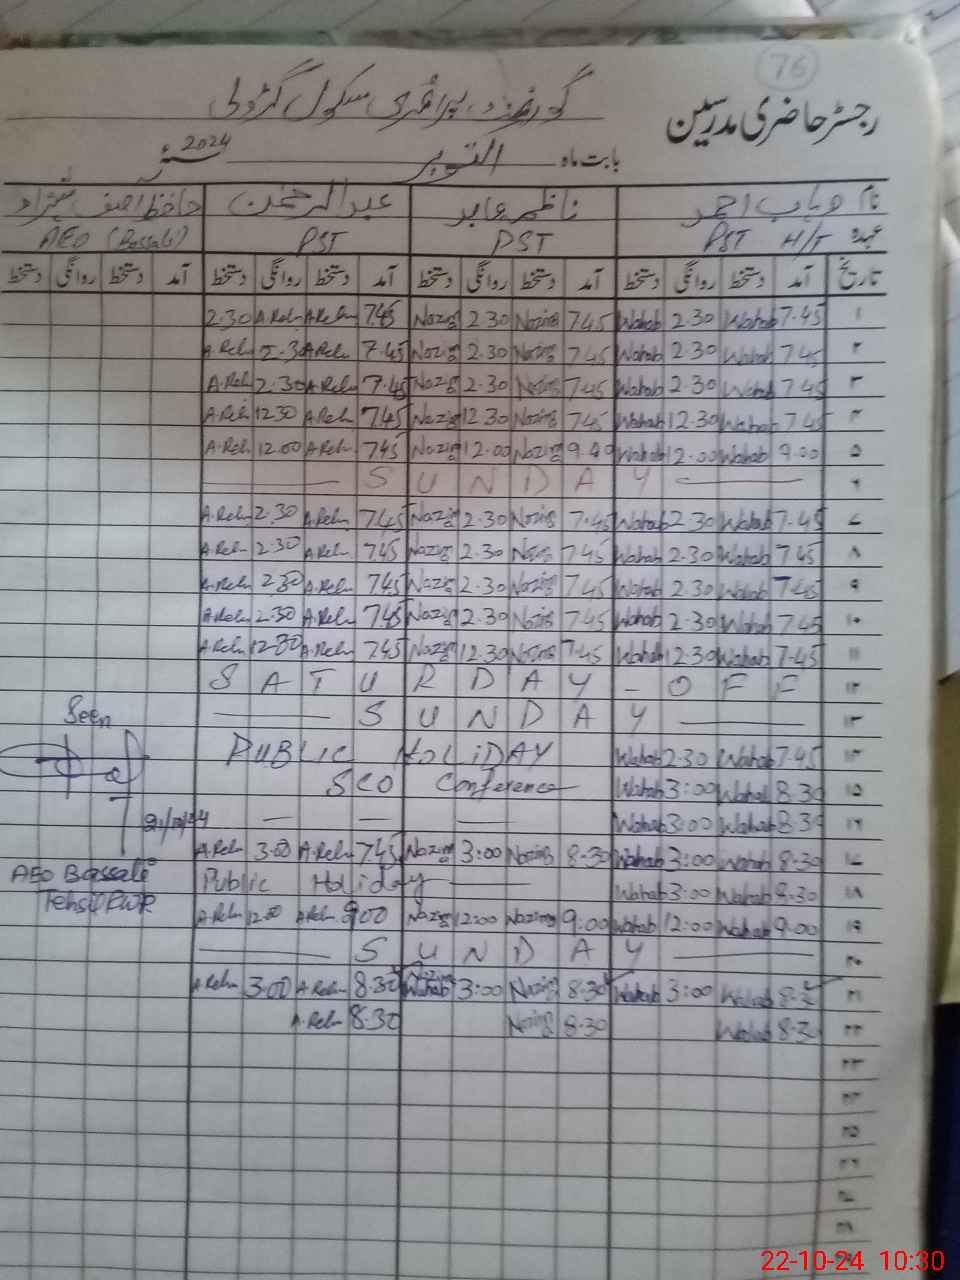 76
رجسٹر حاضری مدرسین
گورنمنٹ پرائمری سکول
بابت ماہ اکتوبر سنہ 2024
نام وہاب احمد ناظم عابد عبدالرحمٰن حافظ آصف شہزاد
عہدہ PST H/T PST PST AEO (Bassali)
تاریخ آمد دستخط روانگی دستخط آمد دستخط روانگی دستخط آمد دستخط روانگی دستخط آمد دستخط روانگی دستخط
۱ 7.45 Wahab 2.30 Wahab 745 Nazim 2.30 Nazim 7.45 A.Reh A.Reh 2.30
۲ 7.45 Wahab 2.30 Wahab 745 Nazim 2.30 Nazim 7.45 A.Reh 2.30 A.Reh
۳ 7.45 Wahab 2.30 Wahab 745 Nazim 2.30 Nazim 7.45 A.Reh 2.30 A.Reh
۴ 745 Wahab 12.30 Wahab 745 Nazim 12.30 Nazim 745 A.Reh 12.30 A.Reh
۵ 9.00 Wahab 12.00 Wahab Nazim 12.00 Nazim 745 A.Reh 12.00 A.Reh
۶ SUNDAY
۷ 7.45 Wahab 2.30 Wahab 7.45 Nazim 2.30 Nazim 7.45 A.Reh 2.30 A.Reh
۸ 7.45 Wahab 2.30 Wahab 745 Nazim 2.30 Nazim 745 A.Reh 2.30 A.Reh
۹ 7.45 Wahab 2.30 Wahab 745 Nazim 2.30 Nazim 745 A.Reh 2.30 A.Reh
۱۰ 7.45 Wahab 2.30 Wahab 745 Nazim 2.30 Nazim 745 A.Reh 2.30 A.Reh
۱۱ 7.45 Wahab 12.30 Wahab 7.45 Nazim 12.30 Nazim 745 A.Reh 12.30 A.Reh
۱۲ SATURDAY - OFF
۱۳ SUNDAY
۱۴ 7.45 Wahab 2.30 Wahab PUBLIC HOLiDAY
۱۵ 8.30 Wahab 3:00 Wahab SCO Conference
۱۶ 8.30 Wahab 3:00 Wahab — — —
۱۷ 8.30 Wahab 3:00 Wahab 8.30 Nazim 3:00 Nazim 745 A.Reh 3.00 A.Reh
۱۸ 8.30 Wahab 3:00 Wahab Public Holiday
۱۹ 9.00 Wahab 12:00 Wahab 9:00 Nazim 12:00 Nazim 9.00 A.Reh 12.00 A.Reh
۲۰ SUNDAY
۲۱ Wahab 3:00 Wahab 8.30 Nazim 3:00 8.30 A.Reh 3.00 A.Reh
۲۲ 8.30 Wahab 8.30 Nazim 8.30 A.Reh
۲۳
۲۴
۲۵
۲۶
۲۷
۲۸
Seen
AEO Bassali
Tehsil RWP
22-10-24 10:30